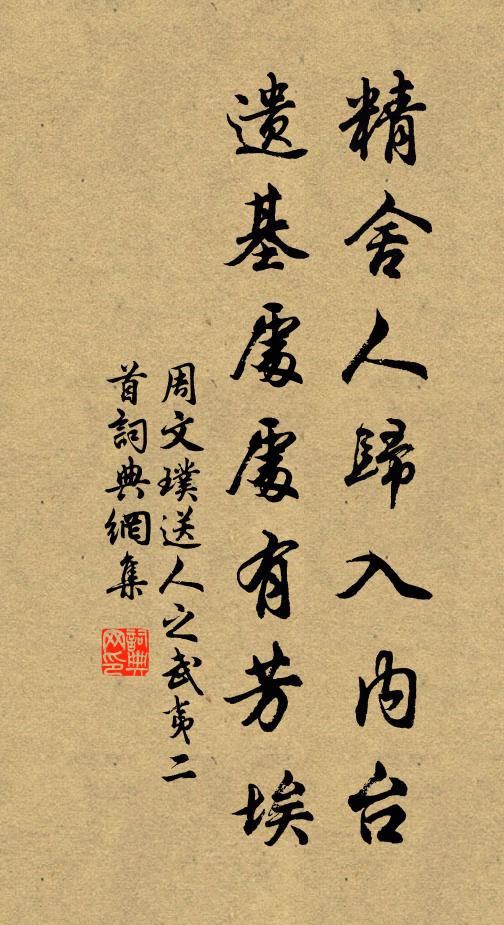 精舍人歸入内台
遺基處處有芳埃
周文璞送人之武夷二
首詞典網集
詞典
网印